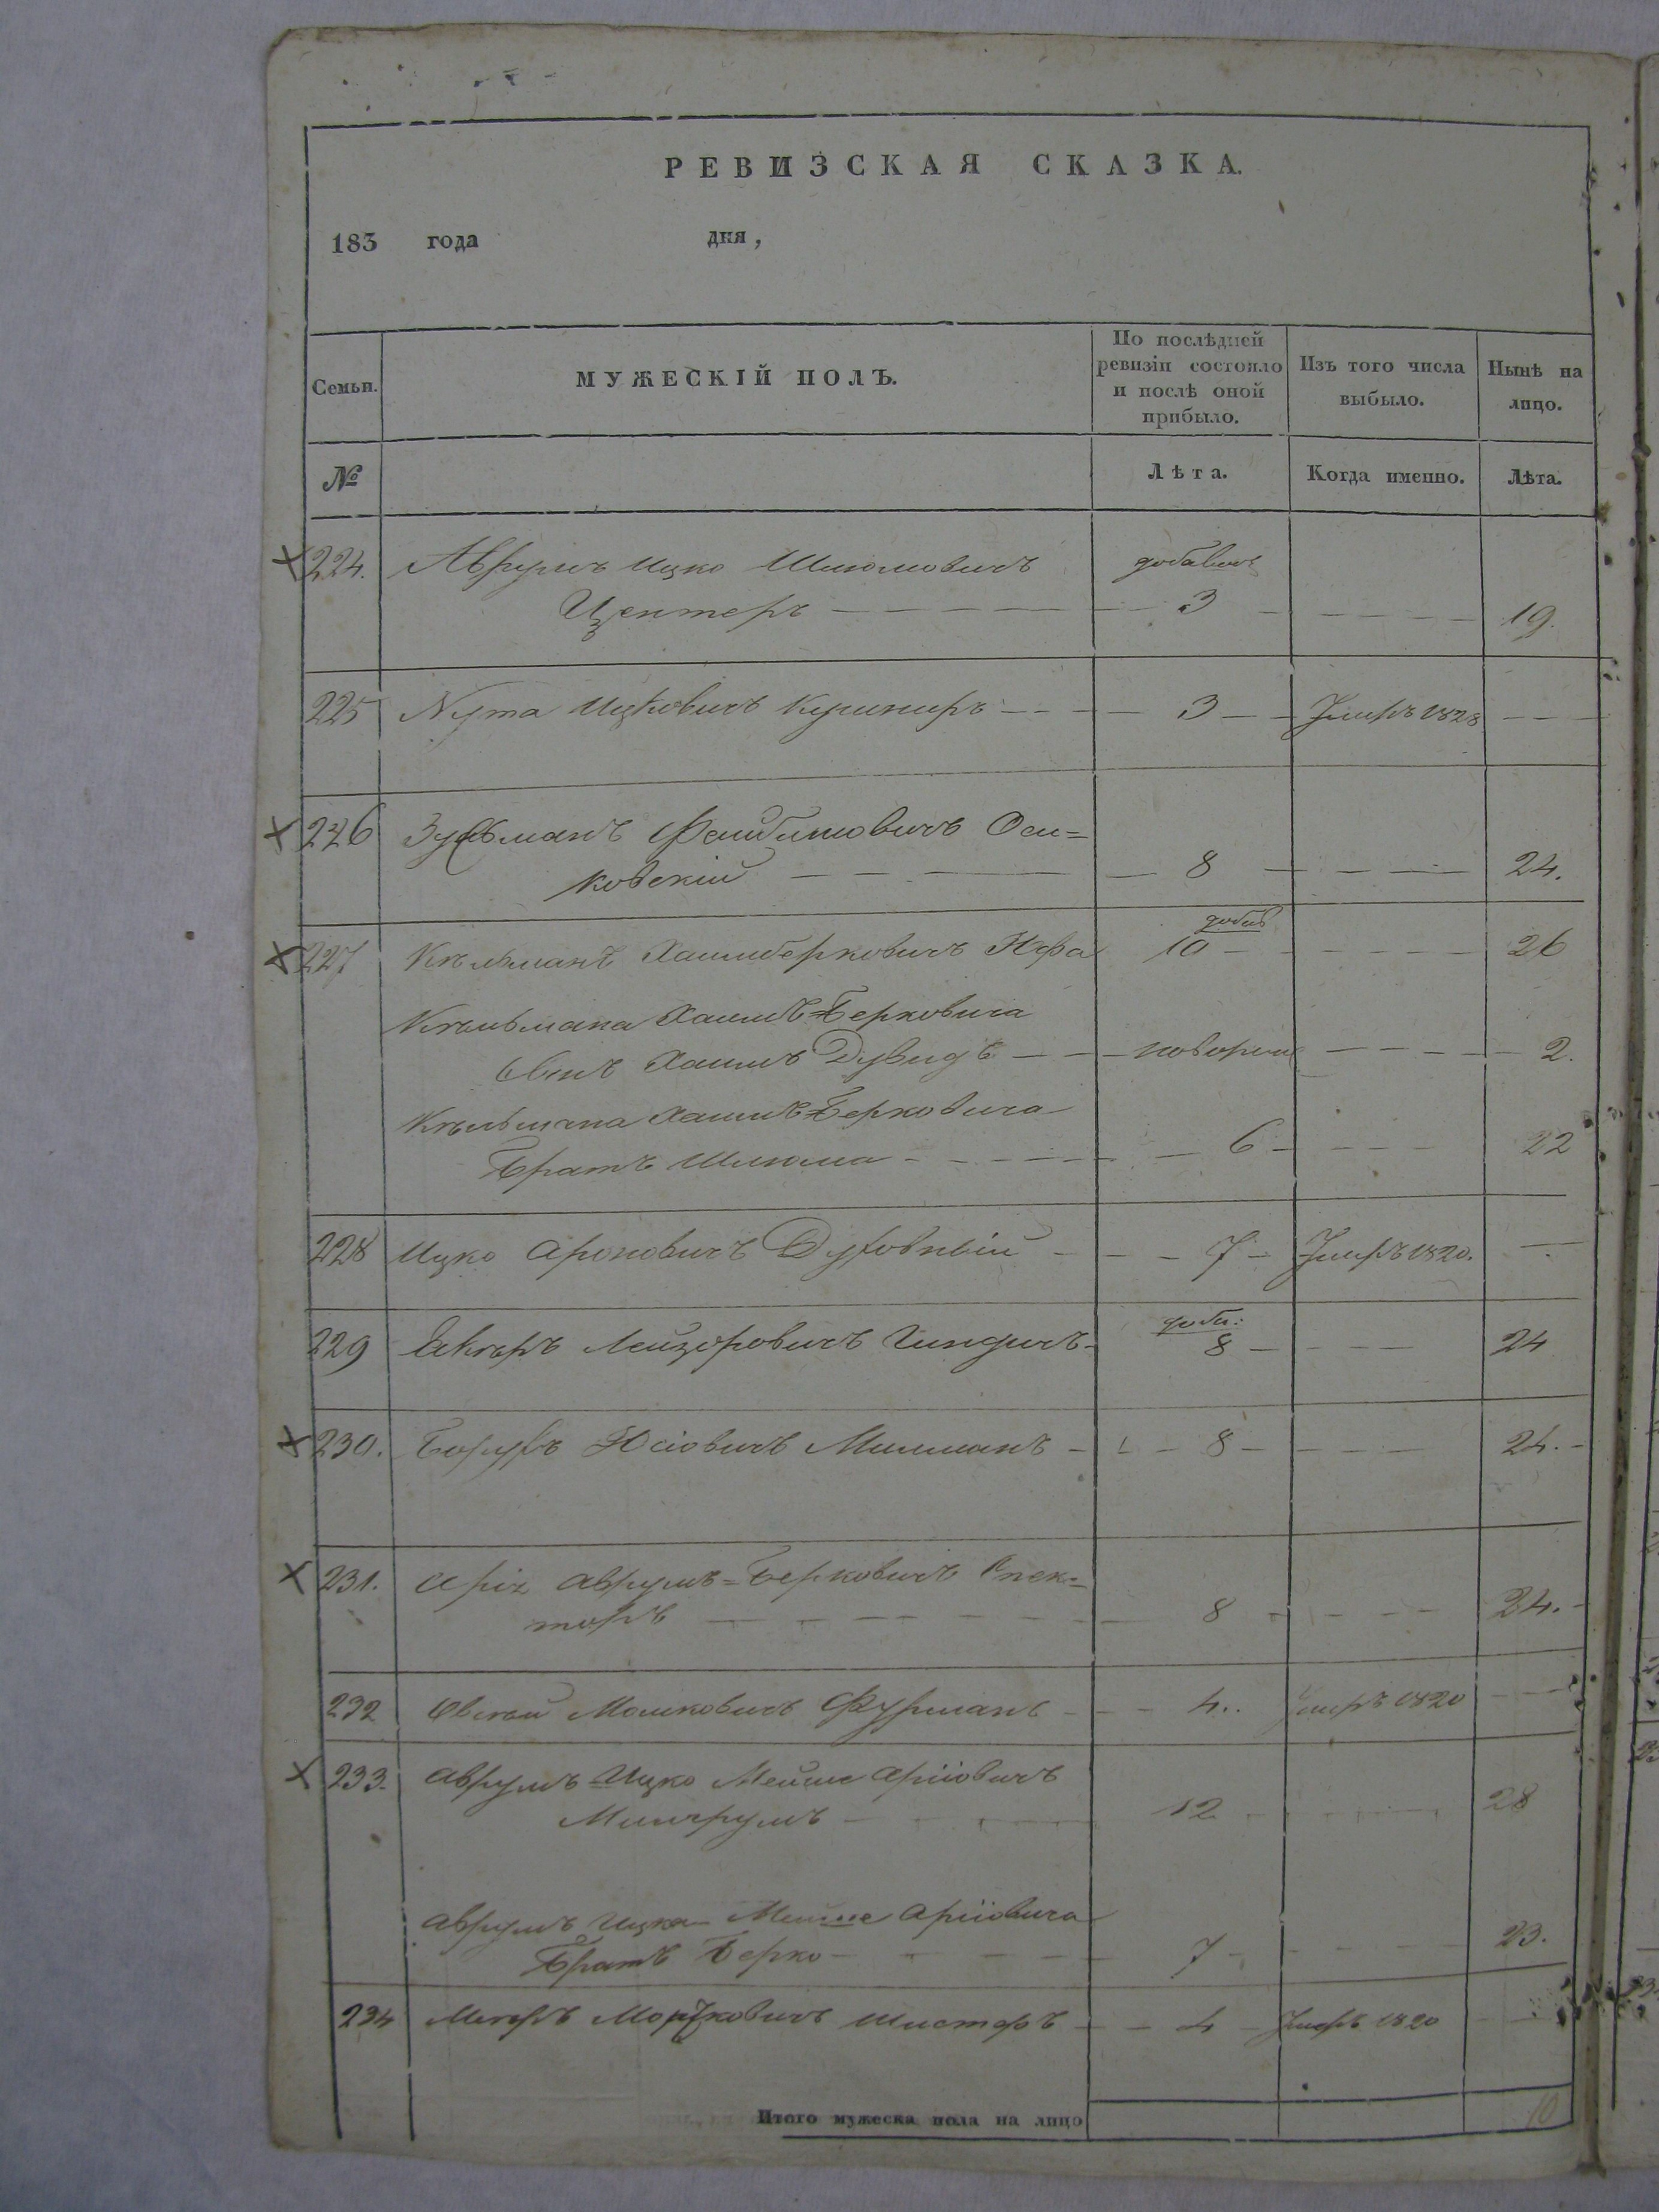 РЕВИЗСКАЯ СКАЗКА.
183 года дня,
Семьи. МУЖЕСКІЙ ПОЛЪ. По послѣдней ревизіи состояло и послѣ оной прибыло. Изъ того числа выбыло. Нынѣ на лицо.
№ Лѣта. Когда именно. Лѣта.
224. Аврумъ Ицко Шлiомовичъ
Центеръ 3 19.
225 Нута Ицковичъ Кушниръ 3 Умеръ 1828
226 Зусьманъ Файбишовичъ Оси=
ковскій 8 24.
227 Кѣльманъ Хаимберковичъ 10 26
Кѣльмана Хаимъ=Берковича
Сынъ Хаимъ Дувидъ новорож 2.
Кѣльмана Хаимъ=Берковича
Братъ Шлiома 6 22
228 Ицко Ароновичъ Духовный 7 Умеръ 1820.
229 Лейзоровичъ 8 24
230. Борухъ Юсіовичъ Мильманъ 8 24.
231. Аріх Аврумъ=Берковичъ Спек=
торъ 8 24.
232 Овсѣй Мошковичъ Фурманъ 4. Умеръ 1820
233. Аврумъ Ицко Мейше Аріiовичъ
12 28
Аврумъ Ицка Мейше Аріiовича
Братъ Берко 7 23.
234 Мееръ Мортковичъ Шистеръ 4 Умеръ 1820
Итого мужеска пола на лицо 10